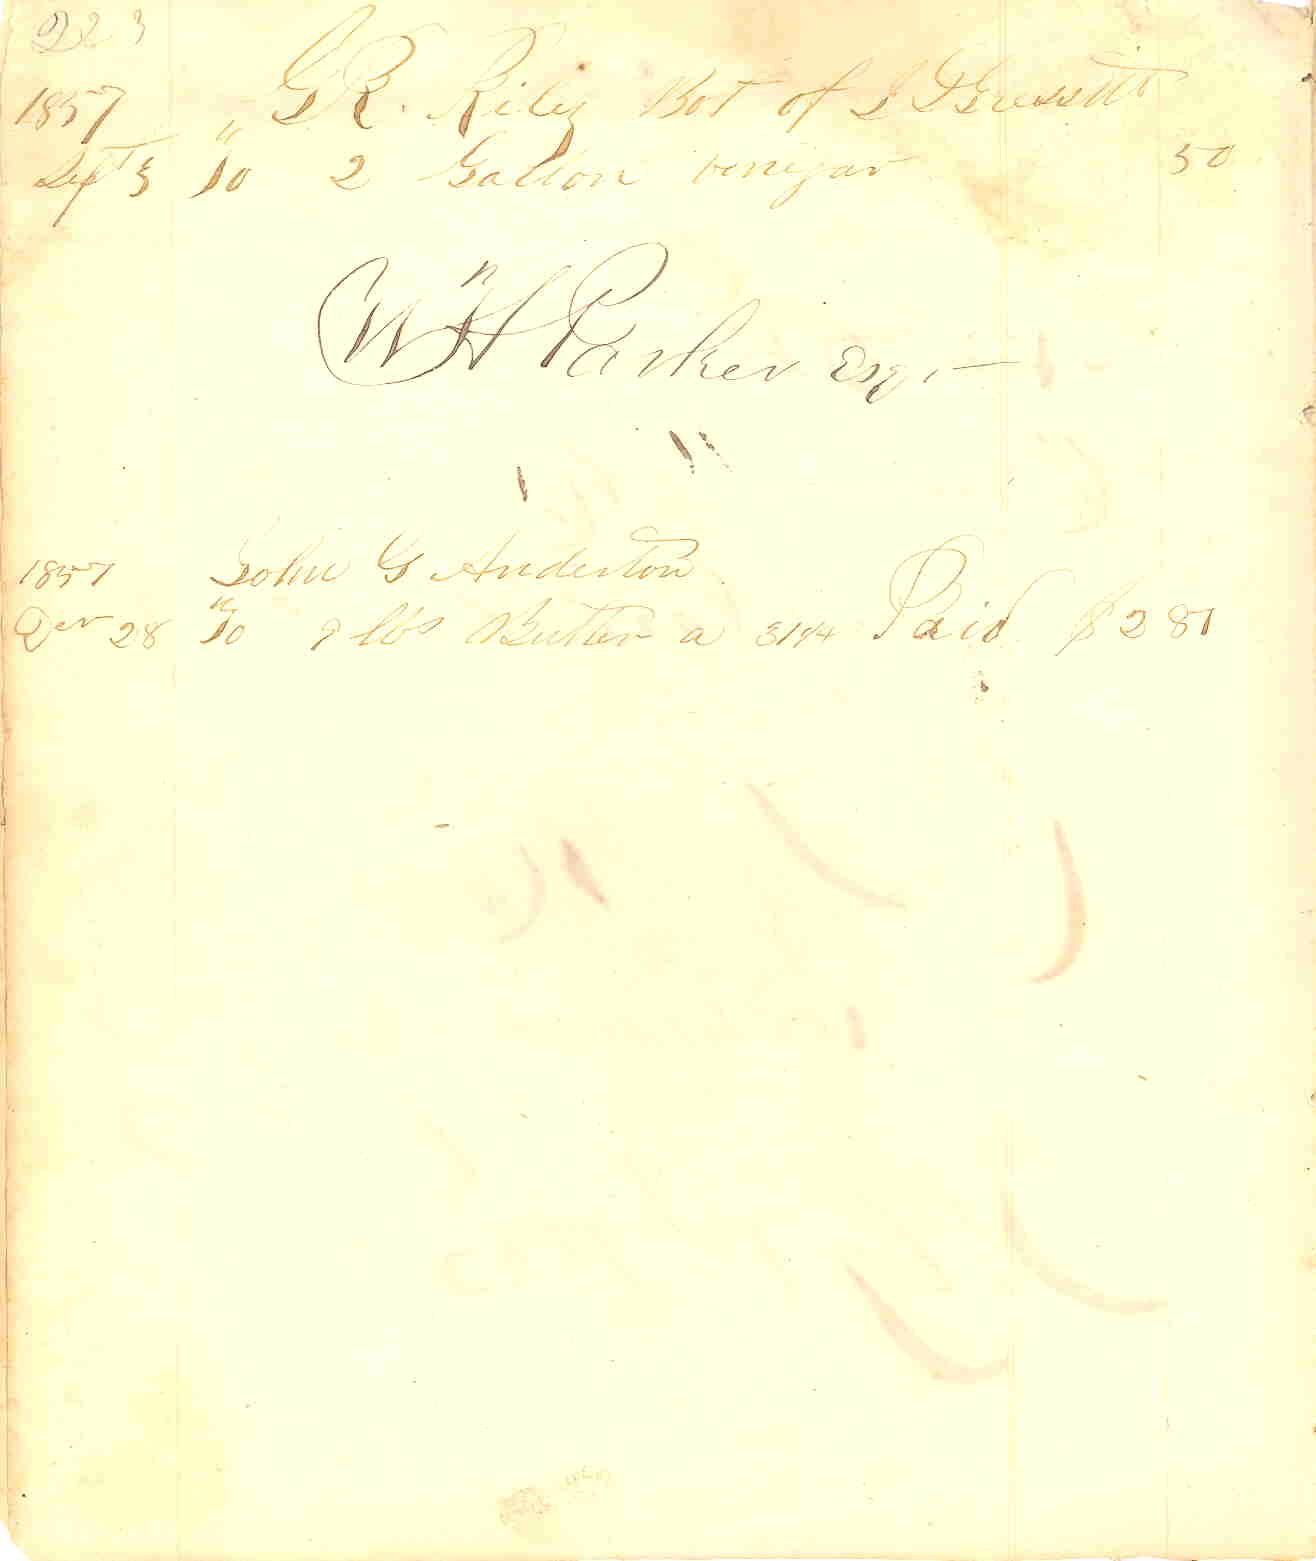 223
1857 " G R. Riley Bot of J D Gressett
Sept 3 To 2 Gallon vinegar 50
Wm H Parker Esqr
1857 John G Anderton
Decr 28 To 9 lbs Butter a 31 1/4 Paid $2 81